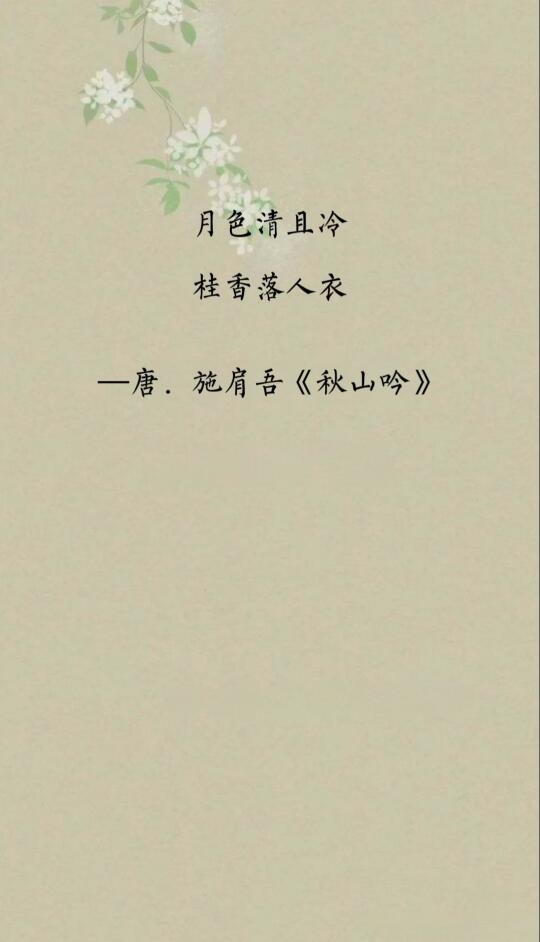 月色清且冷
桂香落人衣
—唐．施肩吾《秋山吟》